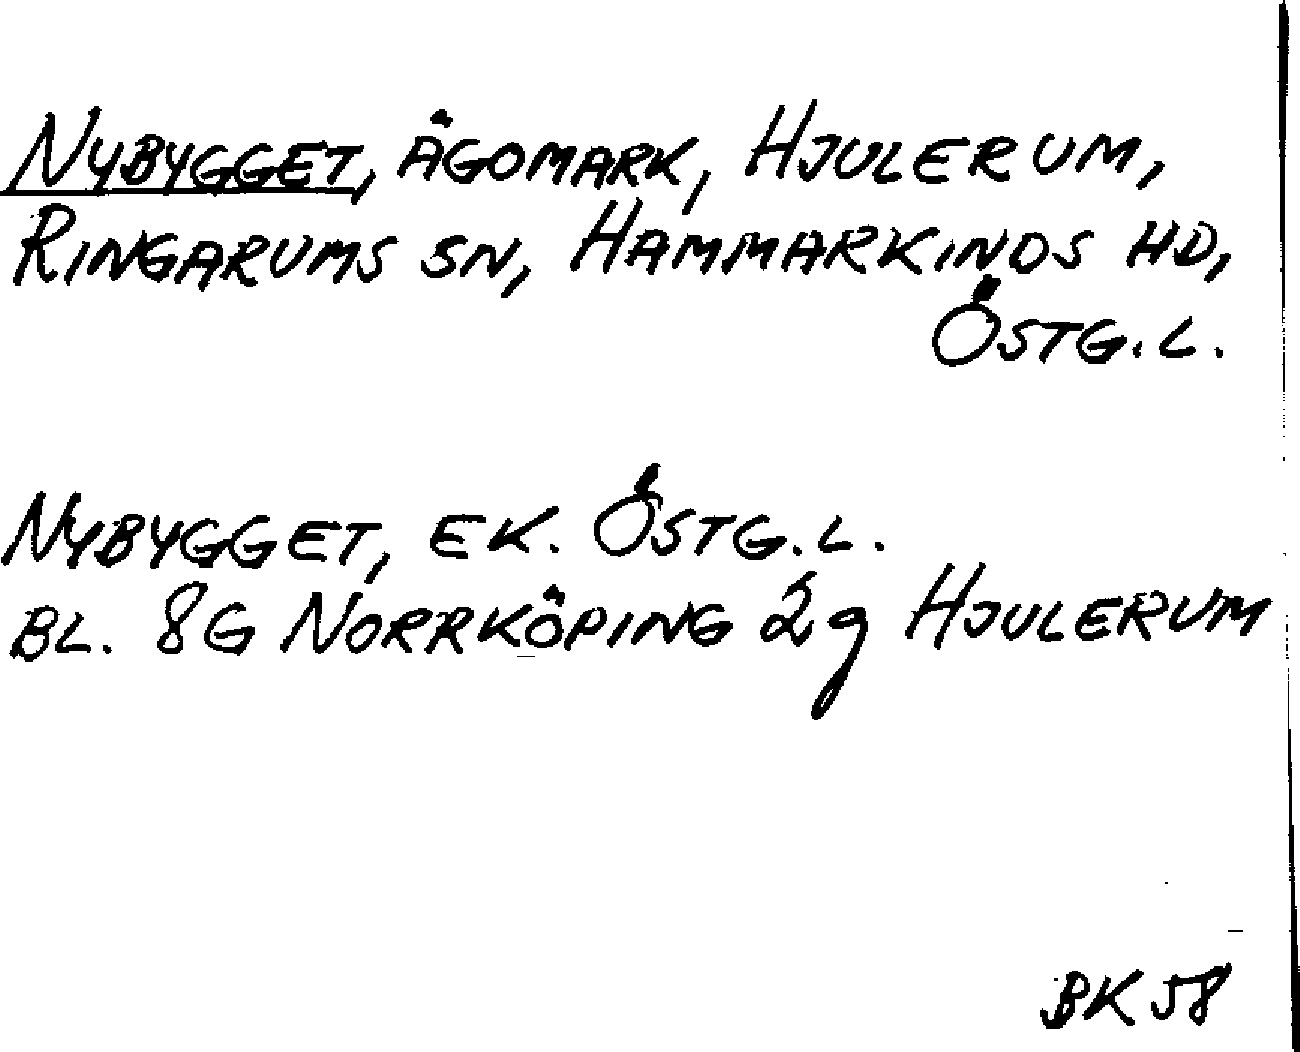 NYBYGGET, ÄGOMARK, HJULERUM,
RINGARUMS SN, HAMMARKINDS HD,
ÖSTG.L.
NYBYGGET, EK. ÖSTG.L.
BL. 8G NORRKÖPING 2g HJULERUM
BK 58